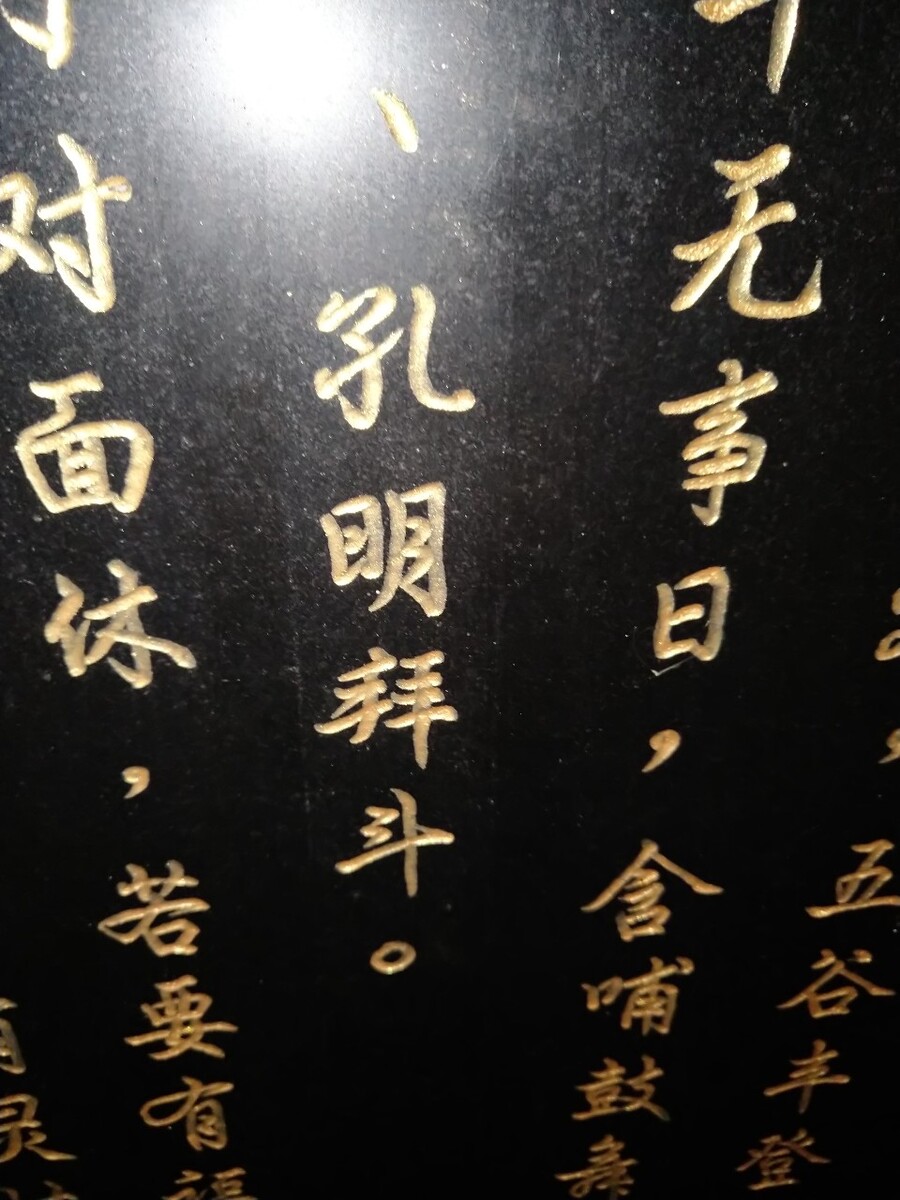 ，五谷丰登
无事日，含哺鼓舞
、孔明拜斗。
对面休，若要有福
有灵